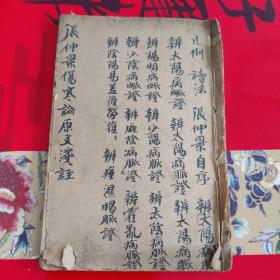 凡例 讀法 張仲景自序
辨太陽病脈證 辨太陽病脈證
辨太陽病脈證 辨太陽病脈證
辨陽明病脈證 辨少陽病脈證 辨太陰病脈證
辨少陰病脈證 辨厥陰病脈證 辨霍亂病脈證
辨陰陽易差後勞復 辨痙濕暍脈證
張仲景傷寒論原文淺註